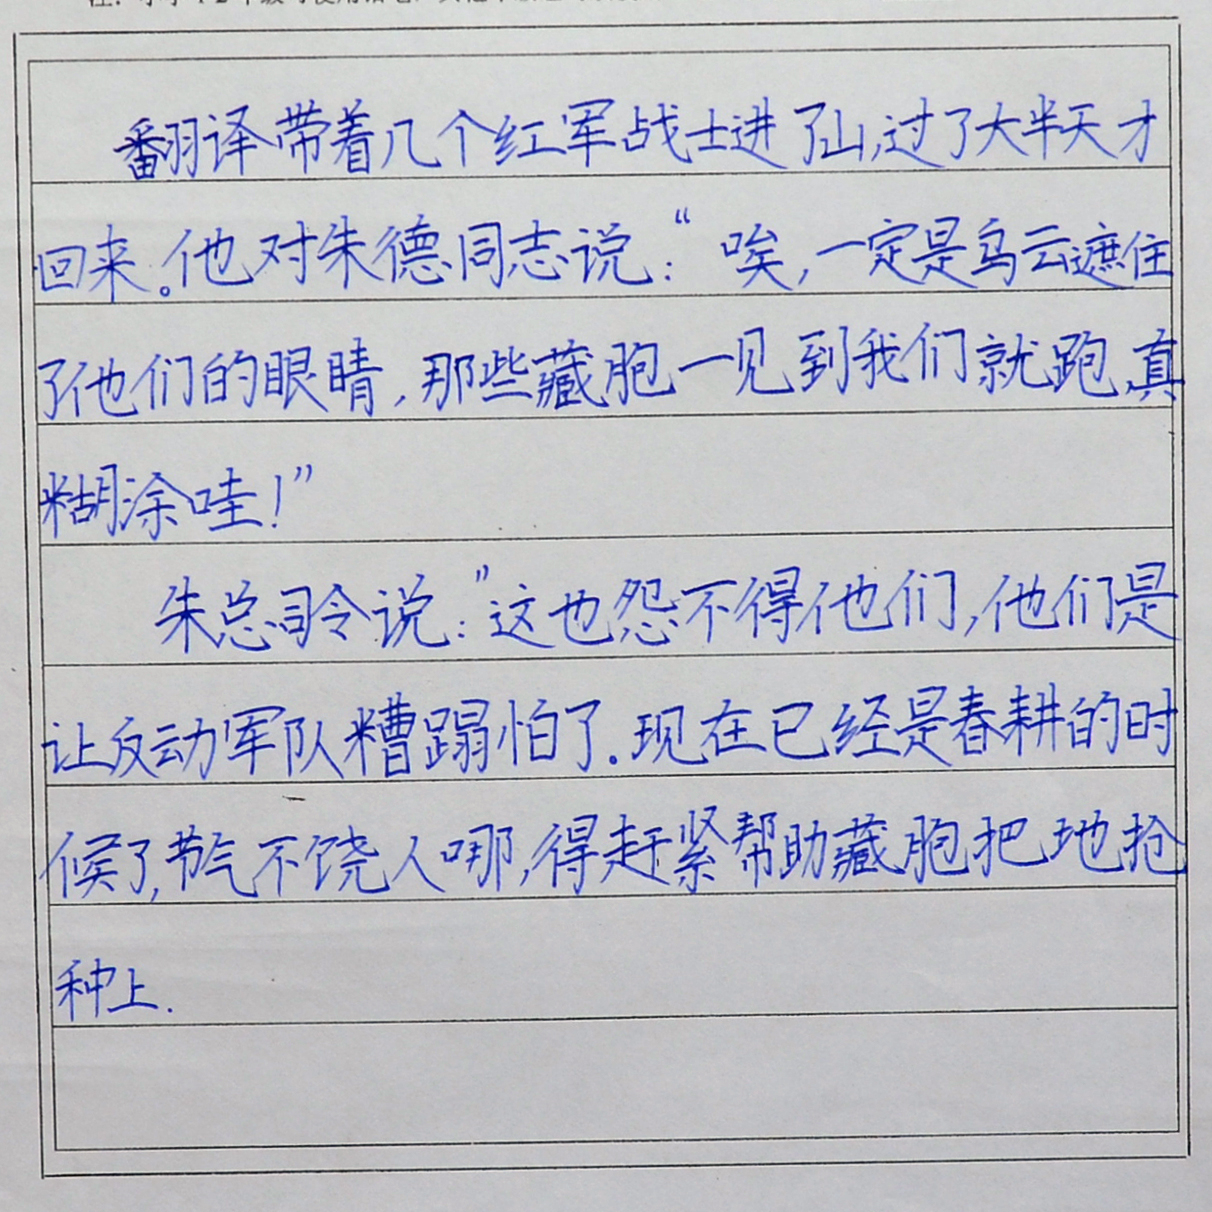 翻译带着几个红军战士进了山,过了大半天才
回来。他对朱德同志说:“唉,一定是乌云遮住
了他们的眼睛,那些藏胞一见到我们就跑,真
糊涂哇!”
朱总司令说:”这也怨不得他们,他们是
让反动军队糟蹋怕了.现在已经是春耕的时
候了,节气不饶人哪,得赶紧帮助藏胞把地抢
种上.